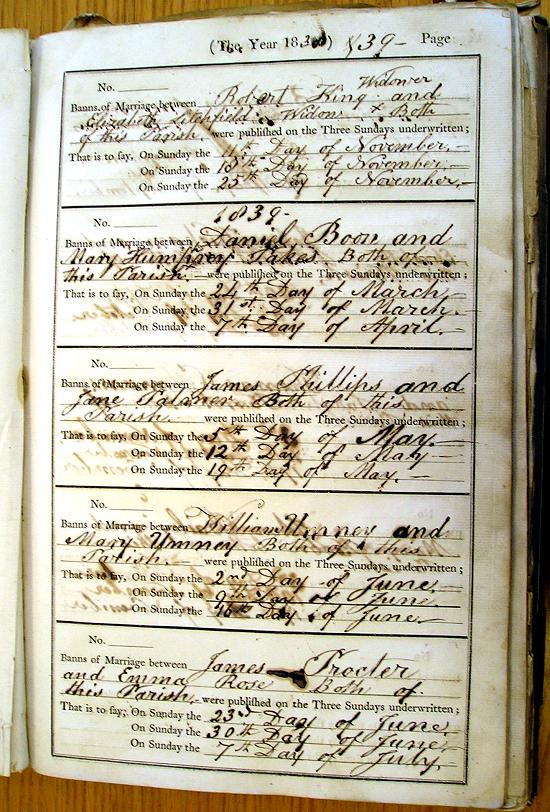 (The Year 183 ) 1839- Page
No. Widower
Banns of Marriage between Robert King and
Elizabeth Litchfield Widow x Both
of this Parish were published on the Three Sundays underwritten;
That is to say, On Sunday the 11th Day of November,
On Sunday the 18th Day of November,
On Sunday the 25th Day of November.
No. 1839-
Banns of Marriage between Daniel Boon and
Mary Humphrey Jakes Both of
this Parish. were published on the Three Sundays underwritten;
That is to say, On Sunday the 24th Day of March,
On Sunday the 31st Day of March.
On Sunday the 7th Day of April.
No.
Banns of Marriage between James Phillips and
Jane Palmer Both of this
Parish. were published on the Three Sundays underwritten;
That is to say, On Sunday the 5th Day of May.
On Sunday the 12th Day of May
On Sunday the 19th Day of May.
No.
Banns of Marriage between William Umney and
Mary Umney Both of this
Parish. were published on the Three Sundays underwritten;
That is to say, On Sunday the 2nd Day of June.
On Sunday the 9th Day of June
On Sunday the 16th Day of June.
No.
Banns of Marriage between James Procter
and Emma Rose Both of
this Parish. were published on the Three Sundays underwritten;
That is to say, On Sunday the 23rd Day of June
On Sunday the 30th Day of June
On Sunday the 7th Day of July.